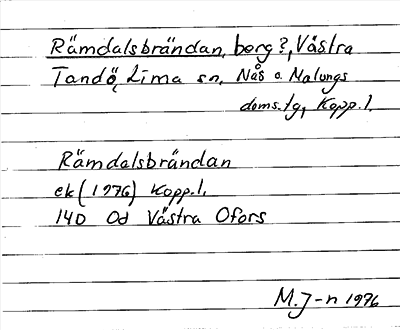 Rämdalsbrändan, berg?, Västra
Tandö, Lima sn, Nås o. Malungs
doms.tg, Kopp.l.
Rämdalsbrändan
ek (1976) Kopp.l.
14D Od Västra Ofors
M.J-n 1976